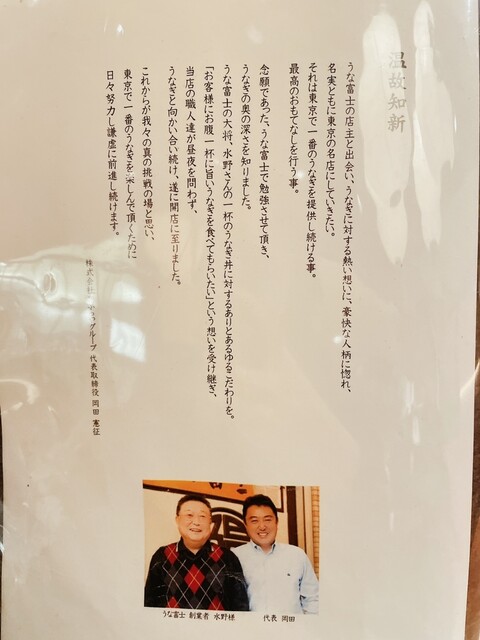 温故知新
うな富士の店主と出会い、うなぎに対する熱い想いに、豪快な人柄に惚れ、
名実ともに東京の名店にしていきたい。
それは東京で一番のうなぎを提供し続ける事。
最高のおもてなしを行う事。
念願であった、うな富士で勉強させて頂き、
うなぎの奥の深さを知りました。
うな富士の大将、水野さんの一杯のうなぎ丼に対するありとあらゆるこだわりを。
「お客様にお腹一杯に旨いうなぎを食べてもらいたい」という想いを受け継ぎ、
当店の職人達が昼夜を問わず、
うなぎと向かい合い続け、遂に開店に至りました。
これからが我々の真の挑戦の場と思い、
東京で一番のうなぎを楽しんで頂くために
日々努力し謙虚に前進し続けます。
株式会社 グループ 代表取締役 岡田 憲征
うな富士 創業者 水野様
代表 岡田